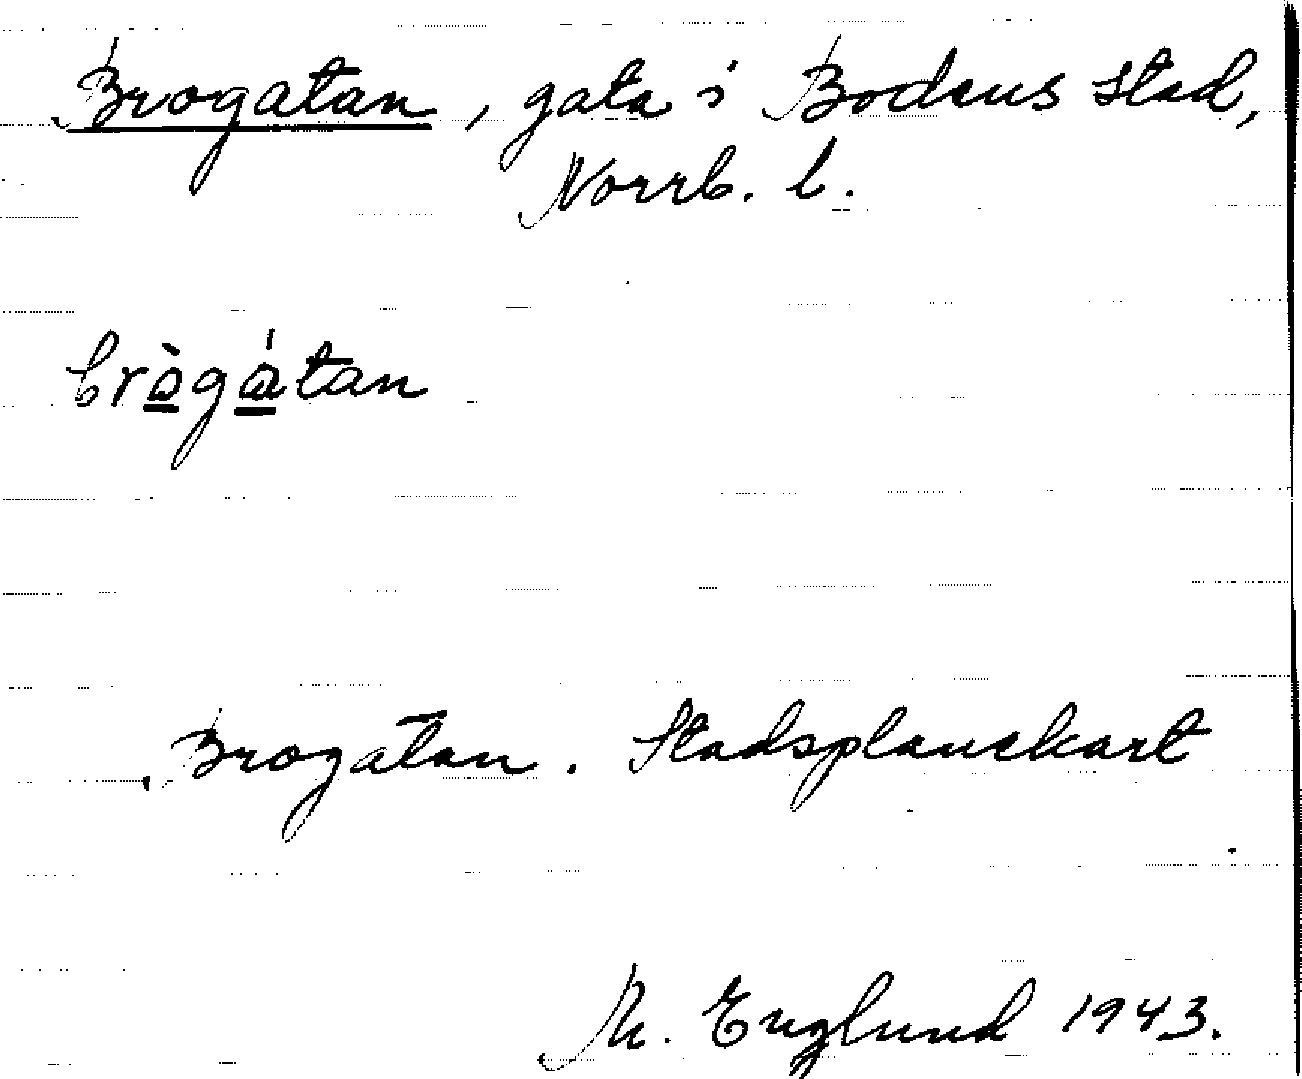 Brogatan, gata i Bodens stad,
Norrb. l.
brògátan
Brogatan. Stadsplanekart
M. Englund 1943.